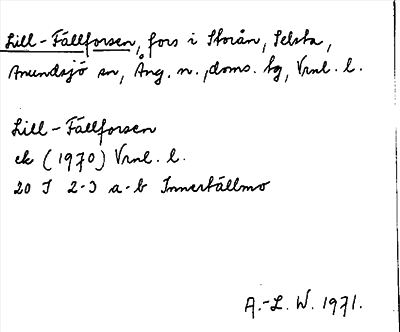 Lill-Fällforsen, fors i Storån, Selsta,
Anundsjö sn, Ång. n., doms. tg, Vrnl. l.
Lill-Fällforsen
ek (1970) Vrnl. l.
20 I 2-3 a-b Innertällmo
A.-L. W. 1971.